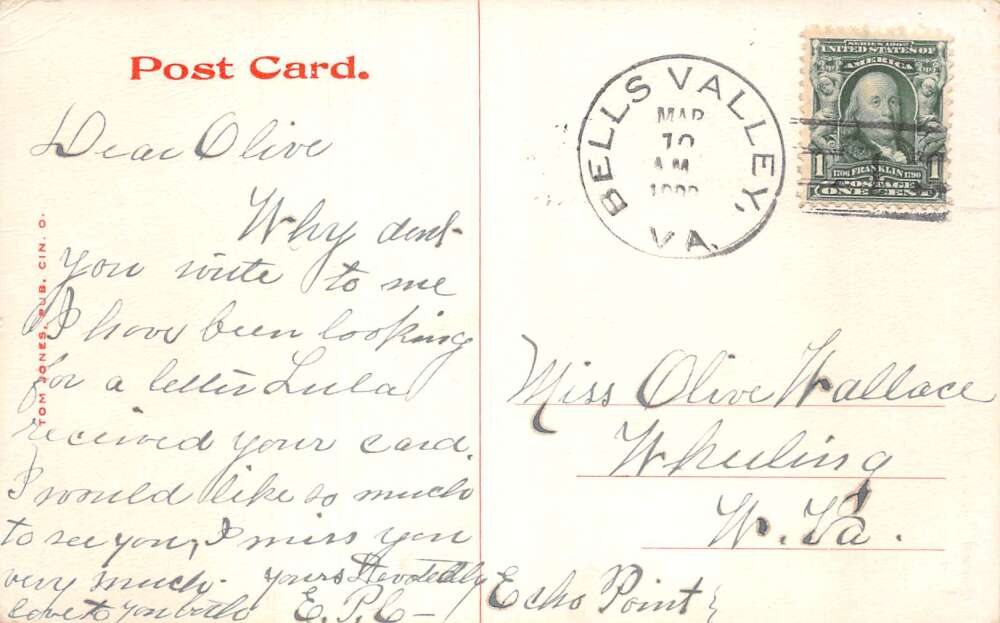 Post Card.
Dear Olive
Why dont
you write to me
I have been looking
for a letter Lula
received your card.
I would like so much
to see you, I miss you
very much. yours devotedly
love to you both E.P.C—
TOM JONES, PUB. CIN. O.
BELLS VALLEY,
MAR
10
A.M.
VA.
SERIES 1902
UNITED STATES OF
AMERICA
1 1
1706 FRANKLIN 1790
POSTAGE
ONE CENT
Miss Olive Wallace
Wheeling
W. Va.
Echo Point